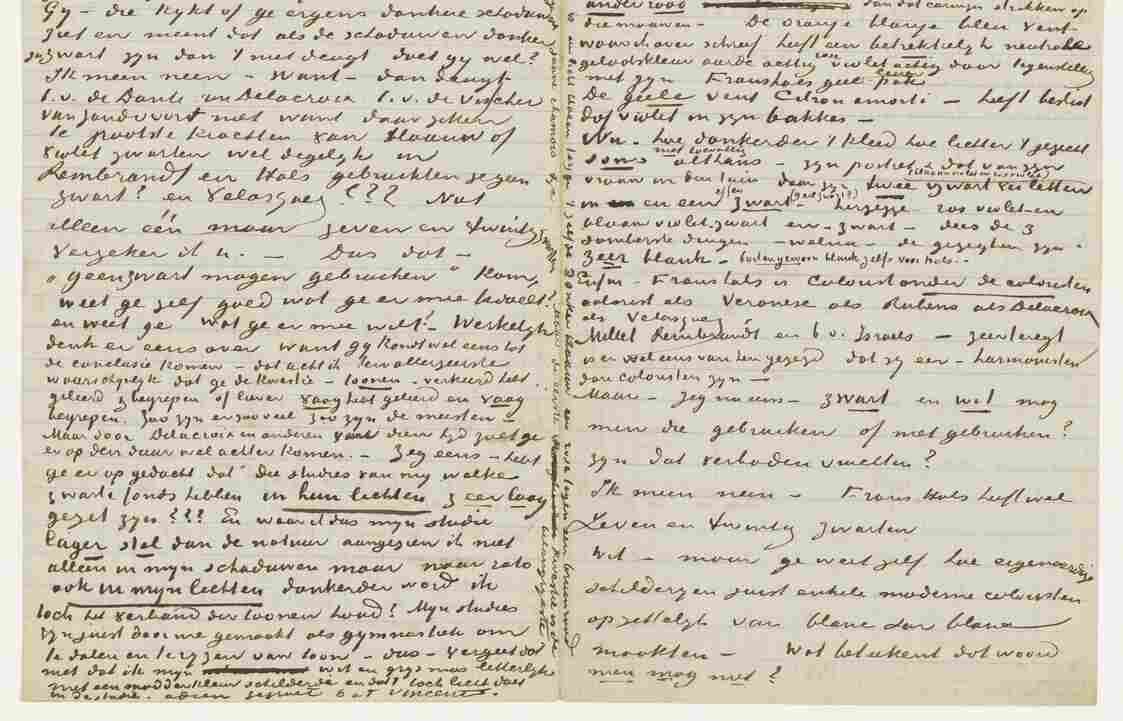 Gy – die Kykt of ge ergens donkere schaduwen
ziet en meent dat als de schaduwen donker
ja zwart zyn dan 't niet deugt doet gy wel?
Ik meen neen – Want – dan deugt
b.v. de Dante van Delacroix b.v. de visscher
van Zandvoort niet want daar zitten
de grootste krachten van blaauw of
violet zwarten wel degelyk in
Rembrandt en Hals gebruikten ze geen
zwart? en Velasquez???? Niet
alleen één maar zeven en twintig
verzeker ik u. – Dus dat –
„geen zwart mogen gebruiken" Kom,
weet ge zelf goed wat ge er mee bedoelt?
en weet ge wat ge er mee wilt? – Werkelyk
denk er eens over want gy Kondt wel eens tot
de conclusie Komen – dat acht ik ten allerzeerste
waarschynlyk dat ge die Kwestie – toonen – verkeerd hebt
geleerd & begrepen of liever vaag hebt geleerd en vaag
begrepen. Zoo zyn er zoo veel zoo zyn de meesten –
Maar door Delacroix en anderen van dien tyd zult ge
er op den duur wel achter komen. – Zeg eens – hebt
ge er op gedacht dat die studies van my welke
zwarte fonds hebben in hun lichten zeer laag
gezet zyn??? En waar ik dus myn studie
lager stel dan de natuur aangezien ik niet
alleen in myn schaduwen maar naar rato
ook in myn lichten donkerder word ik
toch het verband der toonen houd? Myn studies
zyn juist door me gemaakt als gymnastiek om
te dalen en te ryzen van toon – dus – vergeet dat
niet dat ik myn wit en grys mos letterlyk
met een modderkleur schilderde en dat 't toch licht doet
in de studie. adieu gegroet b à t Vincent.
dan dat carmyn strekken op
die mouwen – De oranje blanje bleu vent
waarover schreef heeft een betrekkelyk neutrale
met zyn Franshals geel pak
De geele vent Citron amorti – heeft beslist
dof violet in zyn bakkes –
Nu – hoe donkerder 't kleed hoe lichter 't gezicht
soms althans – zyn portret & dat van zyn
vrouw in den tuin daar zyn twee zwart violetten
en een zwart
blaauw violet zwart en – zwart – dees de 3
somberste dingen – welnu – de gezigten zyn
zeer blank – buitengewoon blank zelfs voor hals. –
Enfin – Frans hals is Colourist onder de colouristen
colorist als Veronese als Rubens als Delacroix
als Velasquez
Millet Rembrandt en b.v. Israels – zeer teregt
is er wel eens van hen gezegd dat zy eer – harmonisten
dan colouristen zyn –
Maar – zeg me eens – zwart en wit mag
men die gebruiken of niet gebruiken?
zyn dat verboden vruchten?
Ik meen neen – Frans Hals heeft wel
Zeven en twintig zwarten
Wit – maar ge weet zelf hoe eigenaardige
schilderyen juist enkele moderne colouristen
opzettelyk van blanc sur blanc
maakten – Wat beteekent dat woord
men mag niet?